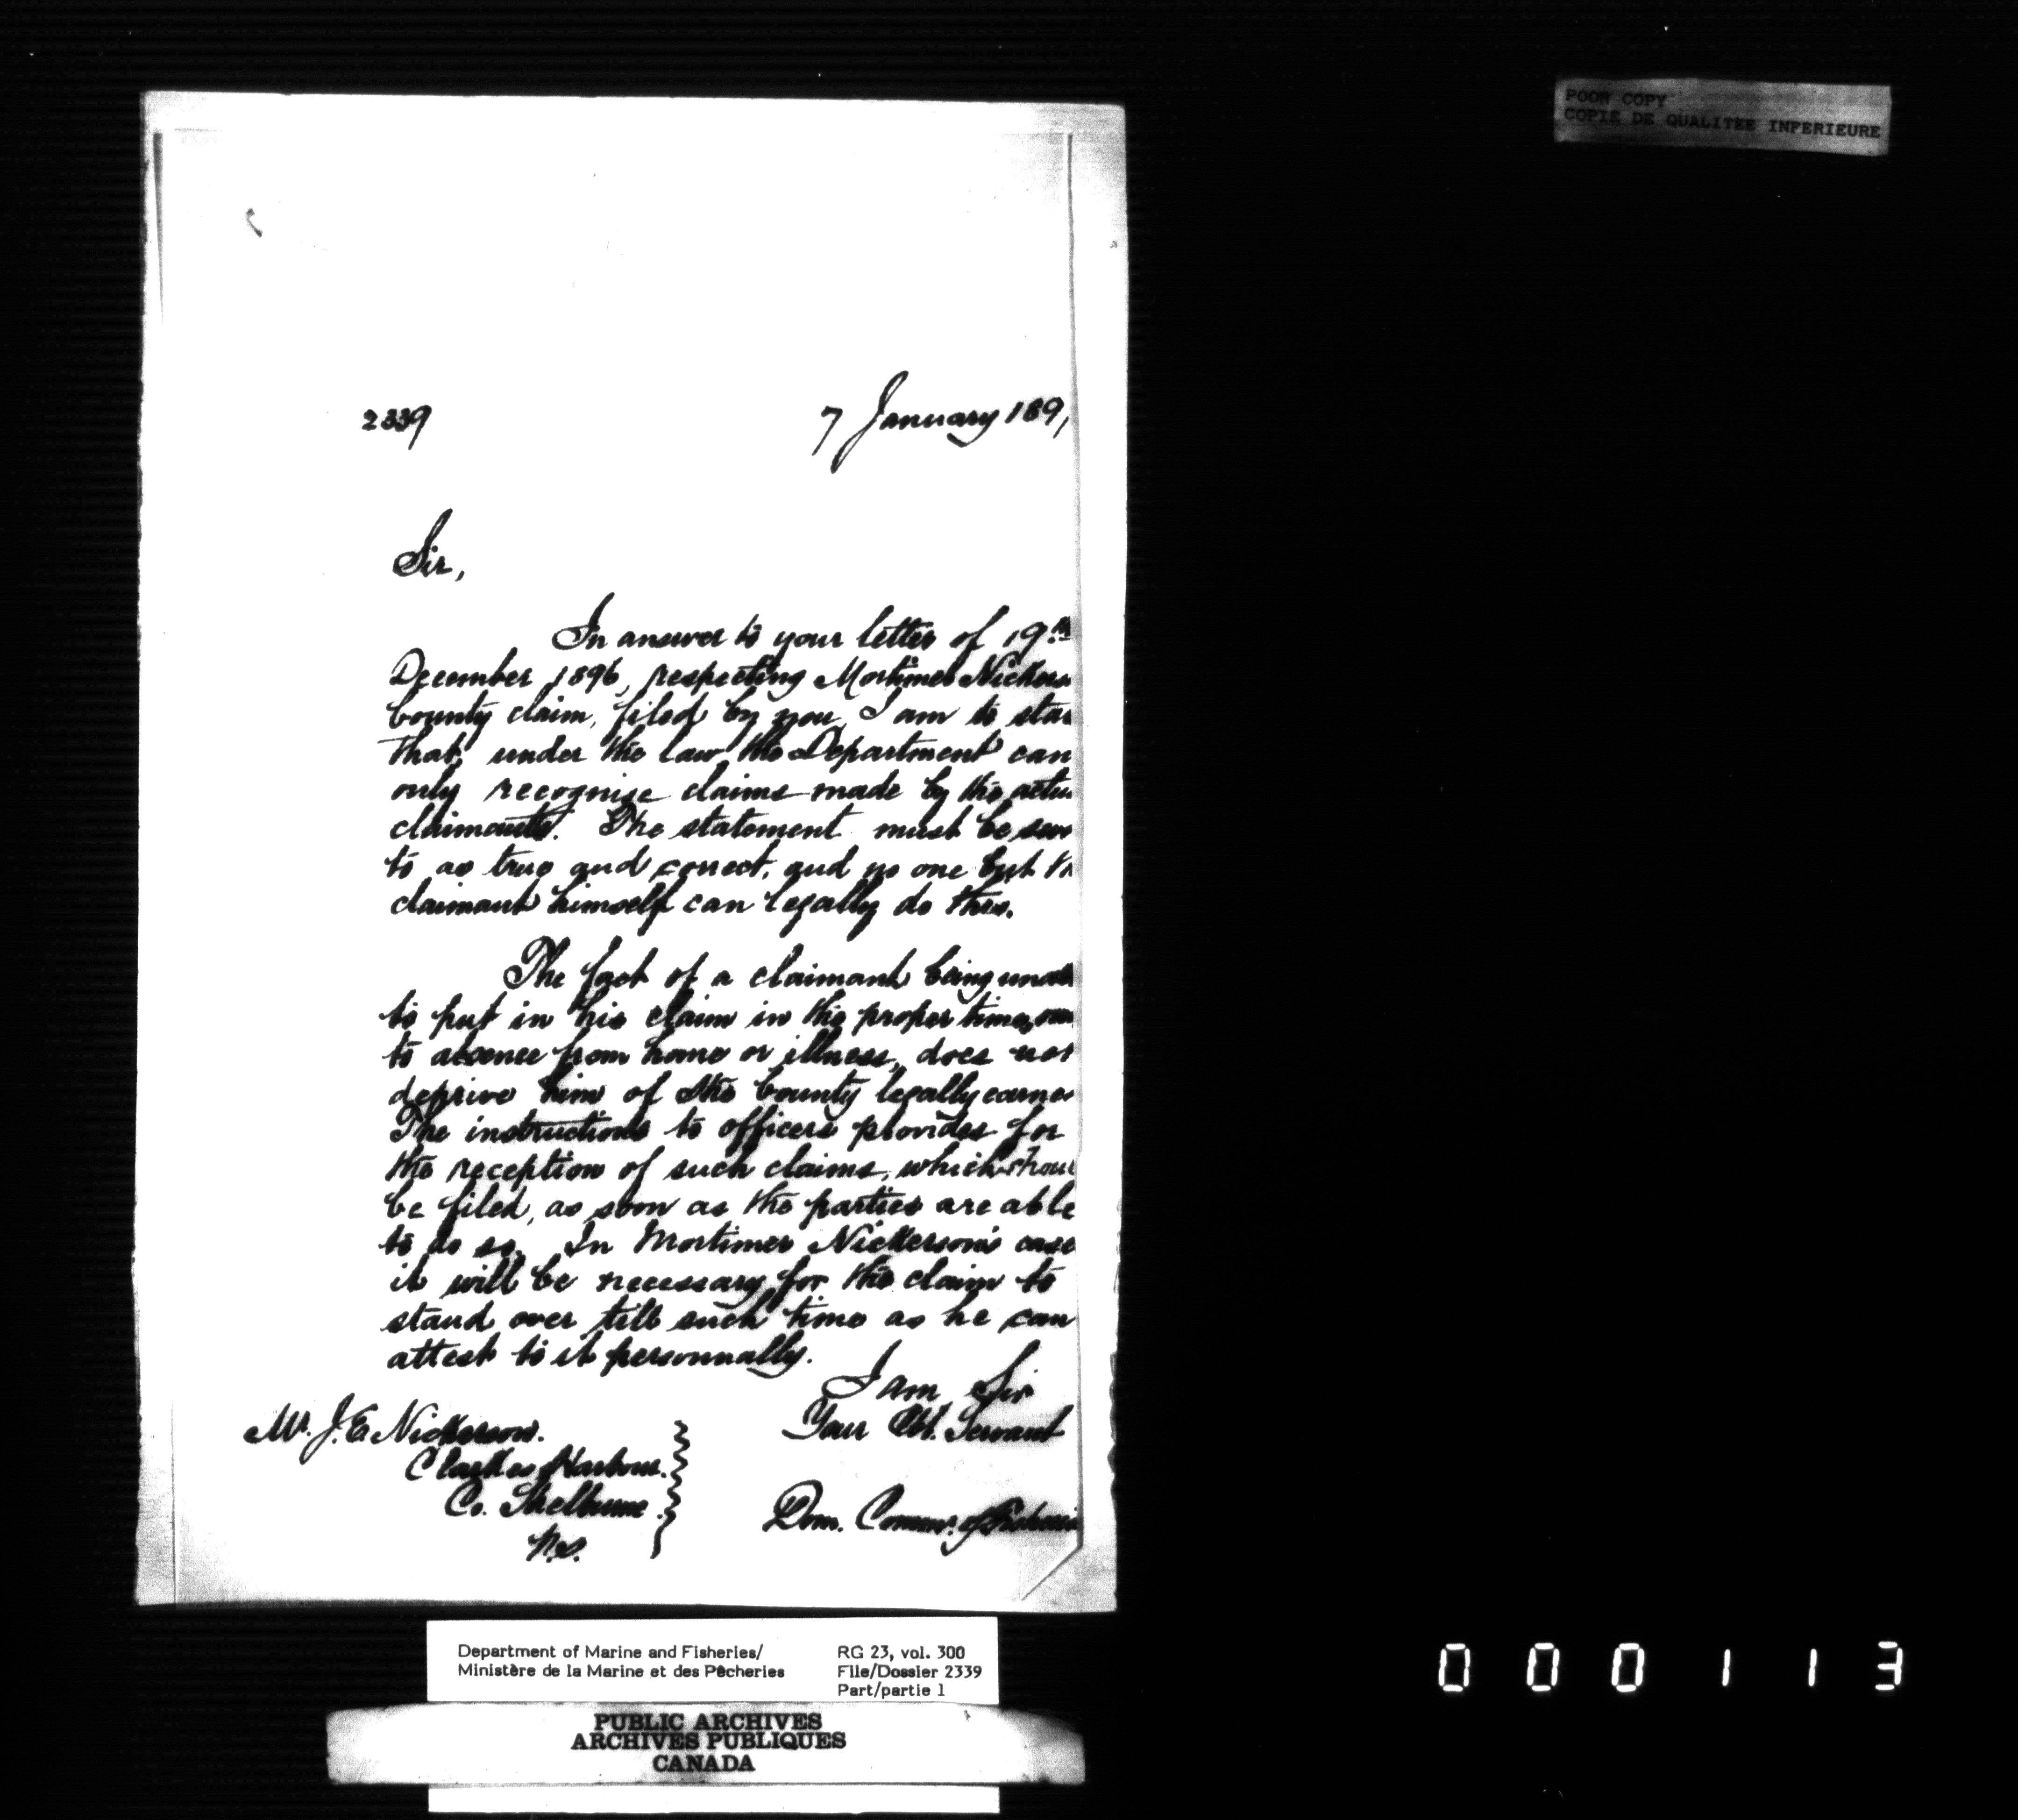 POOR COPY
COPIE DE QUALITEE INFERIEURE
2339
7 January 189
Sir,
In answer to your letter of 19th
December 1896, respecting Mortimer Nickers
bounty claim, filed by you, I am to sta
that, under the law, the Department can
only recognise claims made by the actu
claimants. The statement must be swo
to as true and correct, and no one but th
claimant himself can legally do this.
The fact of a claimant being una
to put in his claim in the proper time, ow
to absence from home or illness, does not
deprive him of the bounty legally earne
The instructions to officers provides for
the reception of such claims, which shou
be filed, as soon as the parties are able
to do so. In Mortimer Nickerson's case
it will be necessary for the claim to
stand over till such time as he can
attest to it personnally.
I am Sir
Your Obt. Servant
Mr. J. E. Nickerson.
Clarkes Harbour.
Co. Shelburne.
N.S.
Dom. Commr. of Fisheri
Department of Marine and Fisheries/
Ministère de la Marine et des Pêcheries
RG 23, vol. 300
File/Dossier 2339
Part/partie 1
PUBLIC ARCHIVES
ARCHIVES PUBLIQUES
CANADA
000113